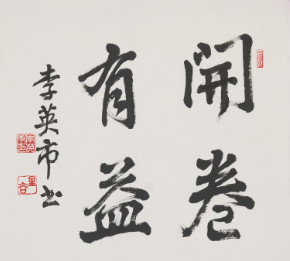 開卷
有益
李英市书